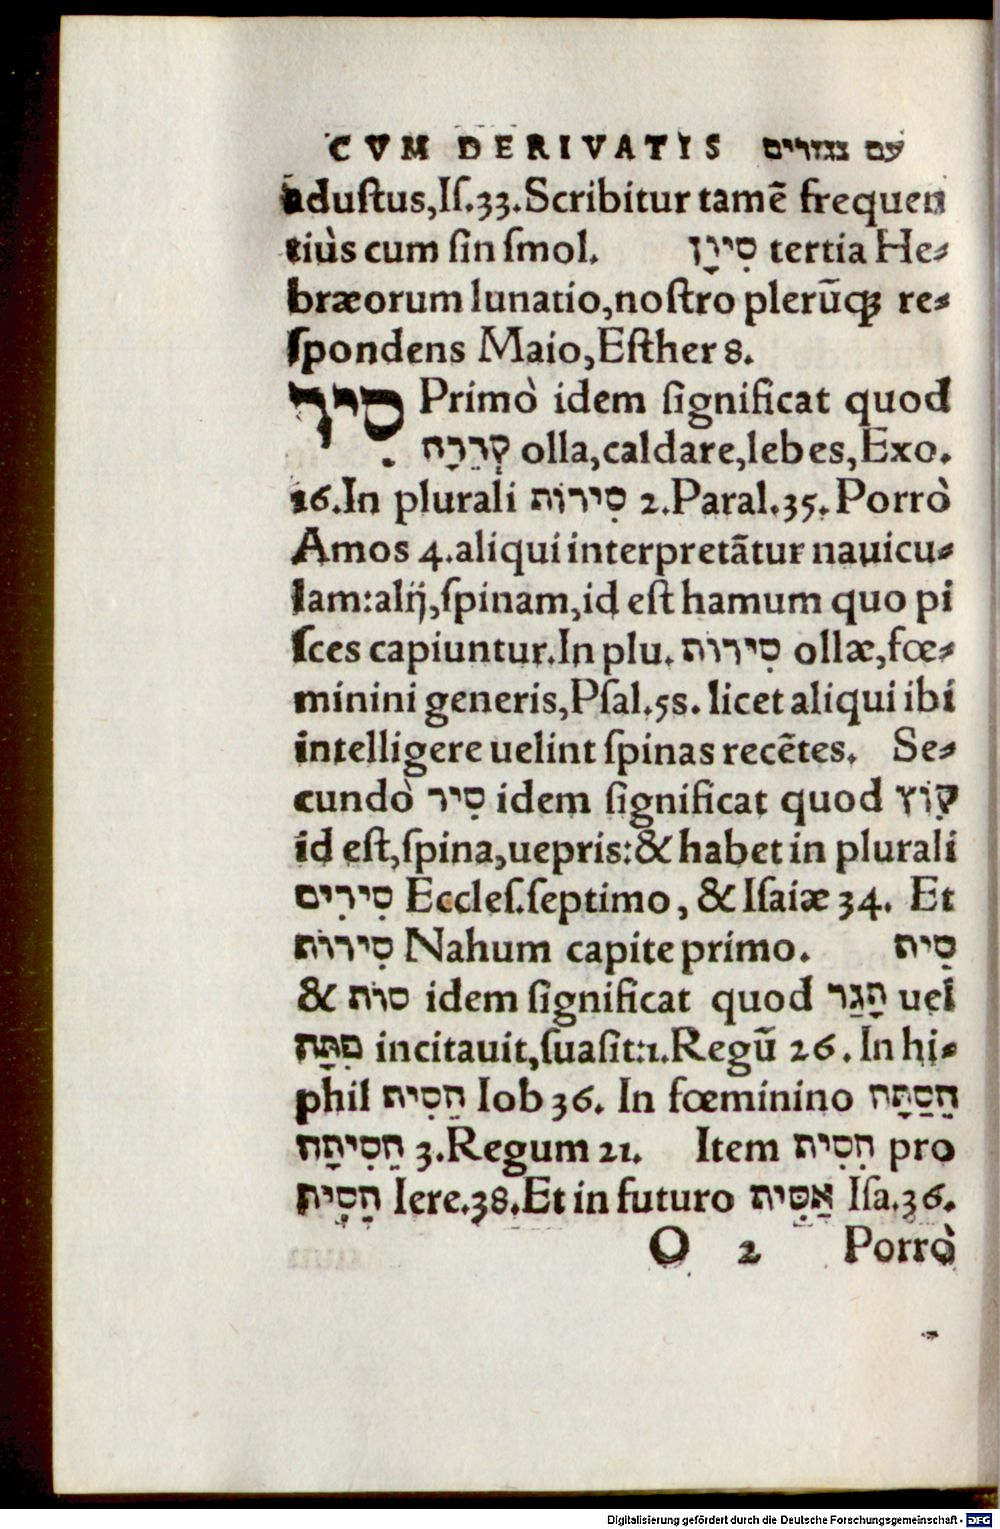 CVM DERIVATIS עם נגזרים
adustus,Is.33.Scribitur tamē frequen
tiùs cum ſin ſmol. סִיוָן tertia He-
bræorum lunatio,noſtro plerūq; re-
ſpondens Maio,Eſther 8.
סִיר Primò idem ſignificat quod
קְדֵרָה olla,caldare,lebes,Exo.
16.In plurali סִירוֹת 2.Paral.35.Porrò
Amos 4.aliqui interpretātur nauicu-
lam:alij,ſpinam,id eſt hamum quo pi
ſces capiuntur.In plu. סִירוֹת ollæ,fœ-
minini generis,Pſal.58. licet aliqui ibi
intelligere uelint ſpinas recētes. Se-
cundò סִיר idem ſignificat quod קוֹץ
id eſt,ſpina,uepris:& habet in plurali
סִירִים Eccleſ.ſeptimo, & Iſaiæ 34. Et
סִירוֹת Nahum capite primo. סִית
& סוֹת idem ſignificat quod הָגַר uel
פִּתָּה incitauit,ſuaſit:1.Regū 26. In hi-
phil הֵסִית Iob 36. In fœminino הֵסַתָּה
הֵסִיתָה 3.Regum 21. Item הִסִּית pro
הָסִית Iere.38.Et in futuro אַסִּית Iſa.36.
O 2 Porrò
Digitalisierung gefördert durch die Deutsche Forschungsgemeinschaft - DFG